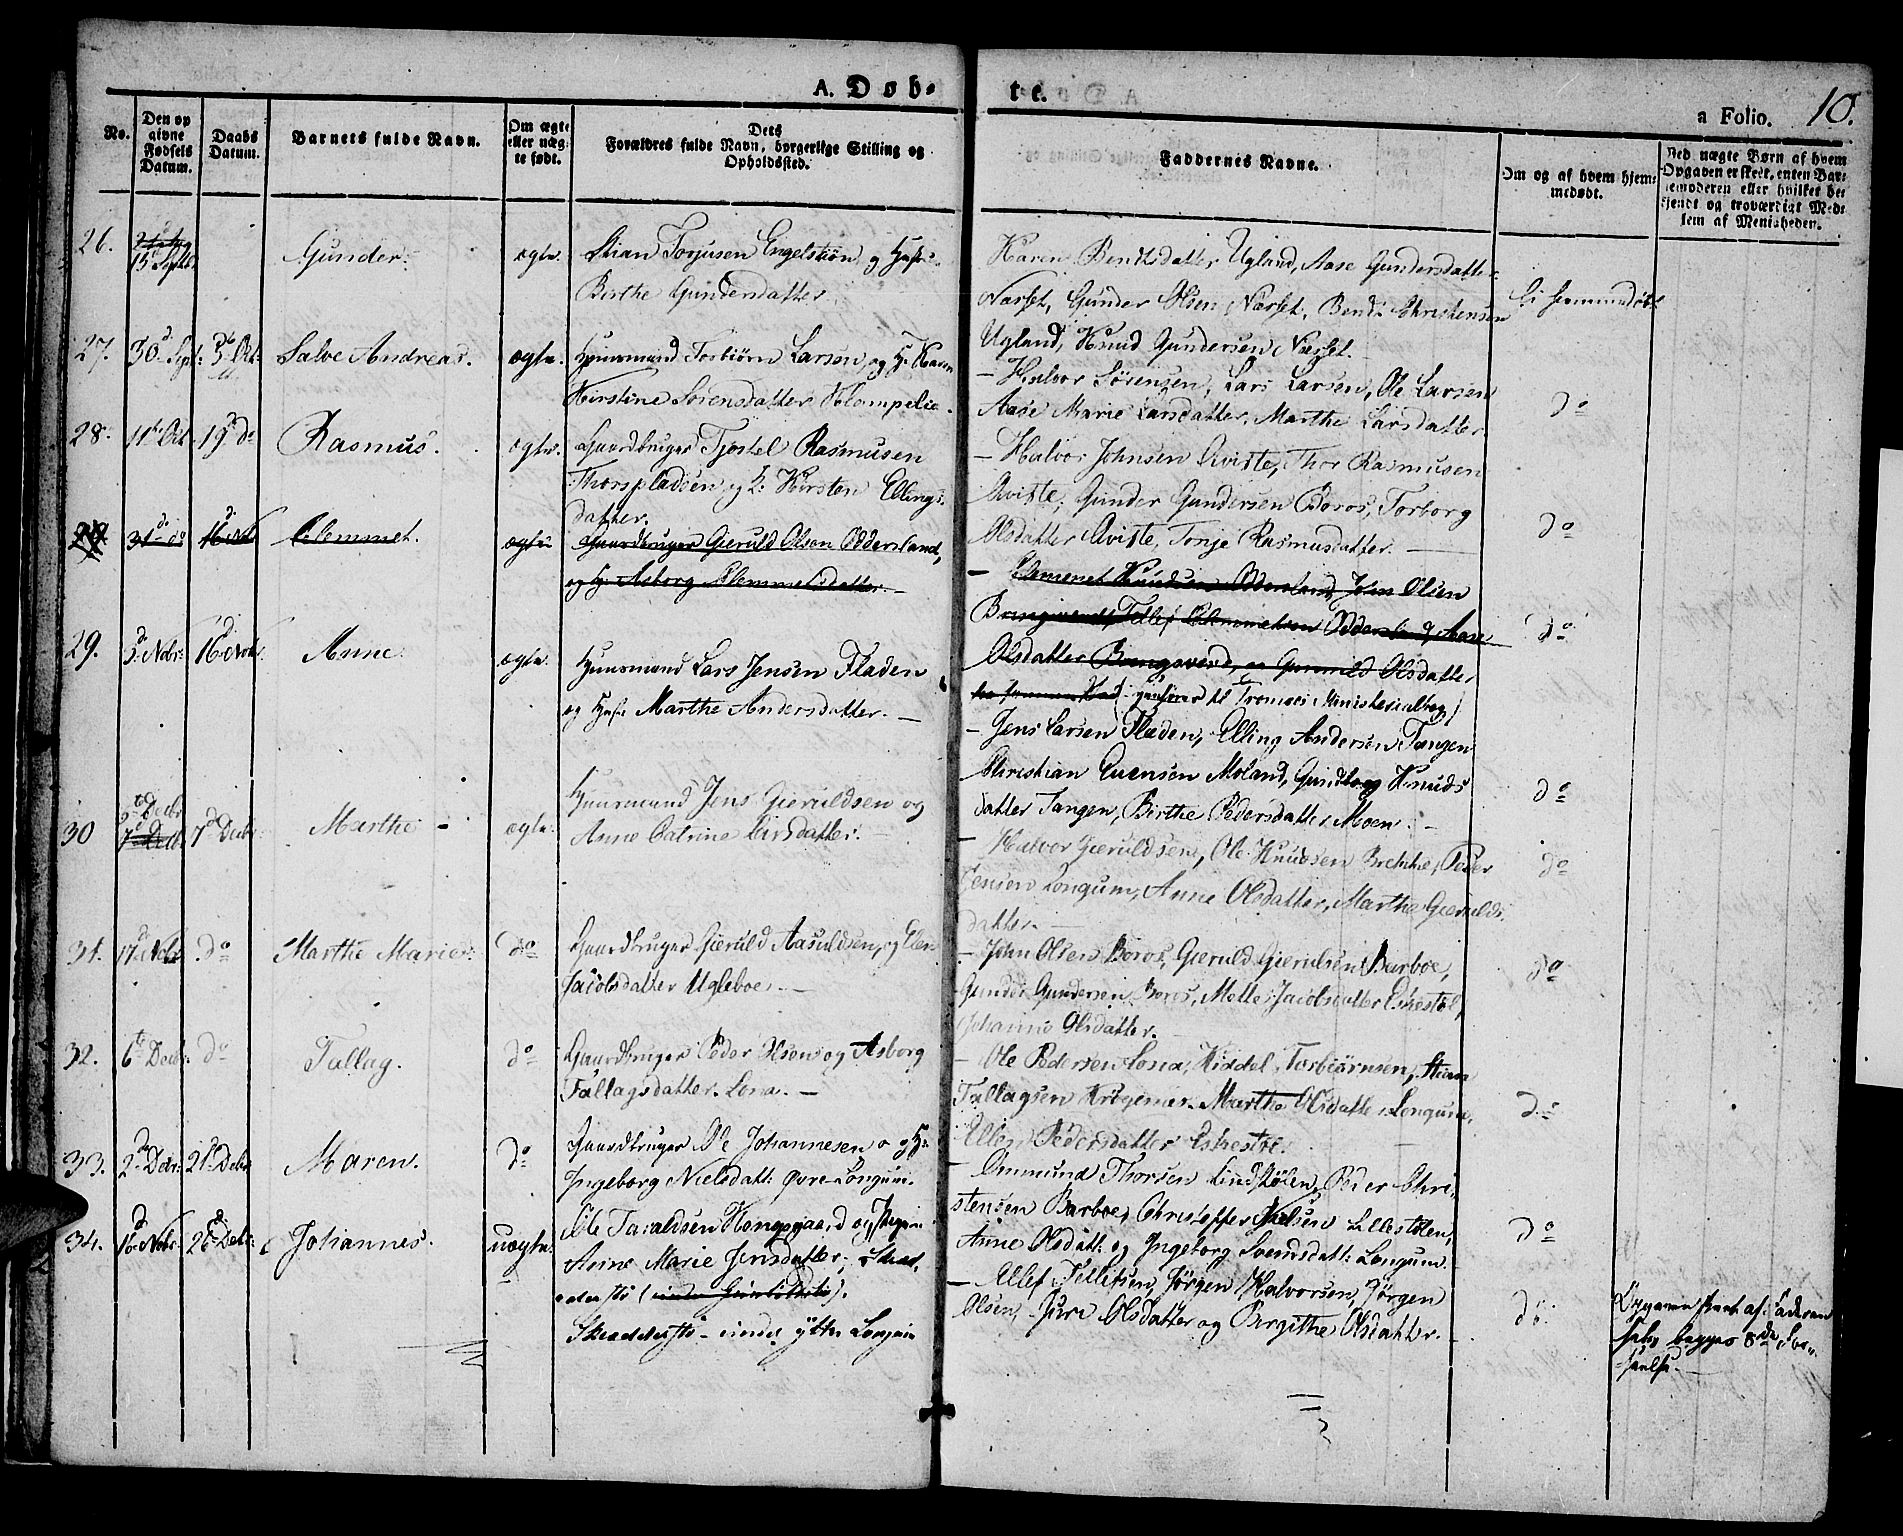 A. Døb-
te.
a Folio. 10.
No.
Den op
givne
Fødsels
Datum.
Daabs
Datum.
Barnets fulde Navn.
Om ægte
eller uæg-
te født.
Dets
Forældres fulde Navn, borgerlige Stilling og
Opholdssted.
Faddernes Navne.
Om og af hvem hjem-
medøbt.
Ved uægte Børn af hvem
Opgaven er skeet, enten Bar-
nemoderen eller hvilket be
kjendt og troværdigt Med-
lem af Menigheden.
26.
15 Septb.
Gunder.
ægte.
Stian Torjusen Engelstiøn og Hustr.
Birthe Gundersdatter
Karen Bendtsdatter Ugland, Aase Gundersdatter
Næset, Gunder Olsen Næset, Bendt Christensen
Ugland, Knud Gundersen Næset.
Ei hiemmedøbt
27.
30 Sept: 5 Oct:
Salve Andreas.
ægte.
Huusmand Torbiørn Larsen, og H. Karen
Kirstine Sørensdatter Klompelie.
– Halvor Sørensen, Lars Larsen, Ole Larsen
Aase Marie Larsdatter, Marthe Larsdatter.
do
28.
11te Oct. 19 do
Rasmus.
ægte.
Gaardbruger Tjøstel Rasmusen
Thorspladsen og H: Kirsten Ellings-
datter.
– Halvor Johnsen Qviste, Thor Rasmusen
Qviste, Gunder Gundersen Boros, Torborg
Olsdatter Qviste, Tonje Rasmusdatter. –
do
29.
31 do 16 Nvb
Clemmet.
ægte
Gaardbruger Gieruld Olsen Oddersland,
og H: Asborg Clemmetsdatter. –
– Clemmet Knudsen Oddersland, John Olsen
Tellef Clemmetsen Oddersland, Aase
Olsdatter og Gunnild Olsdatter
henføres til Tromøe Ministerialbog)
do
29.
3 Nvbr: 16 Nvbr.
Anne.
ægte.
Huusmand Lars Jensen Fladen
og Hust. Marthe Andersdatter. –
– Jens Larsen Fladen, Elling Andersen Tangen
Christian Evensen Moland, Gundborg Knuds
datter Tangen, Birthe Pedersdatter Moen. –
do
30
7 Decbr.
Marthe –
ægte.
Huusmand Jens Gieruldsen og
Anne Catrine Larsdatter.
– Halvor Gieruldsen, Ole Knudsen Brekke, Peder
Jensen Longum, Anne Olsdatter, Marthe Gierulds
datter. –
do
31.
17 Nvbr do
Marthe Marie.
do
Gaardbruger Gieruld Aasuldsen, og Ellen
Jacobsdatter Ugleboe. –
– John Olsen Boros, Gieruld Gierulsen Barboe,
Gunder Gundersen Boros, Mette Jacobsdatter Eskestøl,
Johanne Olsdatter. –
do
32.
6te Decbr: do
Tallag.
do
Gaardbruger Peder Olsen og Asborg
Tallagsdatter Lona. –
– Ole Pedersen Lona, Kiddel Torbiørnsen, Stian
Tallagsen Krøgenes. Marthe Olsdatter Longum,
Ellen Pedersdatter Eskestøe.
do
33.
2 Decbr: 21 Decbr
Maren.
do
Gaardbruger Ole Johannesen og H:
Ingeborg Nielsdatt: øvre Longum.
– Ommund Thorsen Lindstølen, Peder Chri-
stensen Barboe, Christopher Nielsen Lillestølen,
Anne Olsdatt: og Ingeborg Svendsdatt: Longum
do
34.
16 Nvbr: 26 Decbr:
Johannes.
uægte.
Ole Taraldsen Kongsgaard og Pigen
Anne Marie Jensdatter,
Skadderstø – under yttre Longum
– Ellef Tellefsen, Jørgen Halvorsen, Jørgen
Olsen, Juri Olsdatter og Birgithe Olsdatter. –
do
Opgaven skeet af Faderen
selv, begges